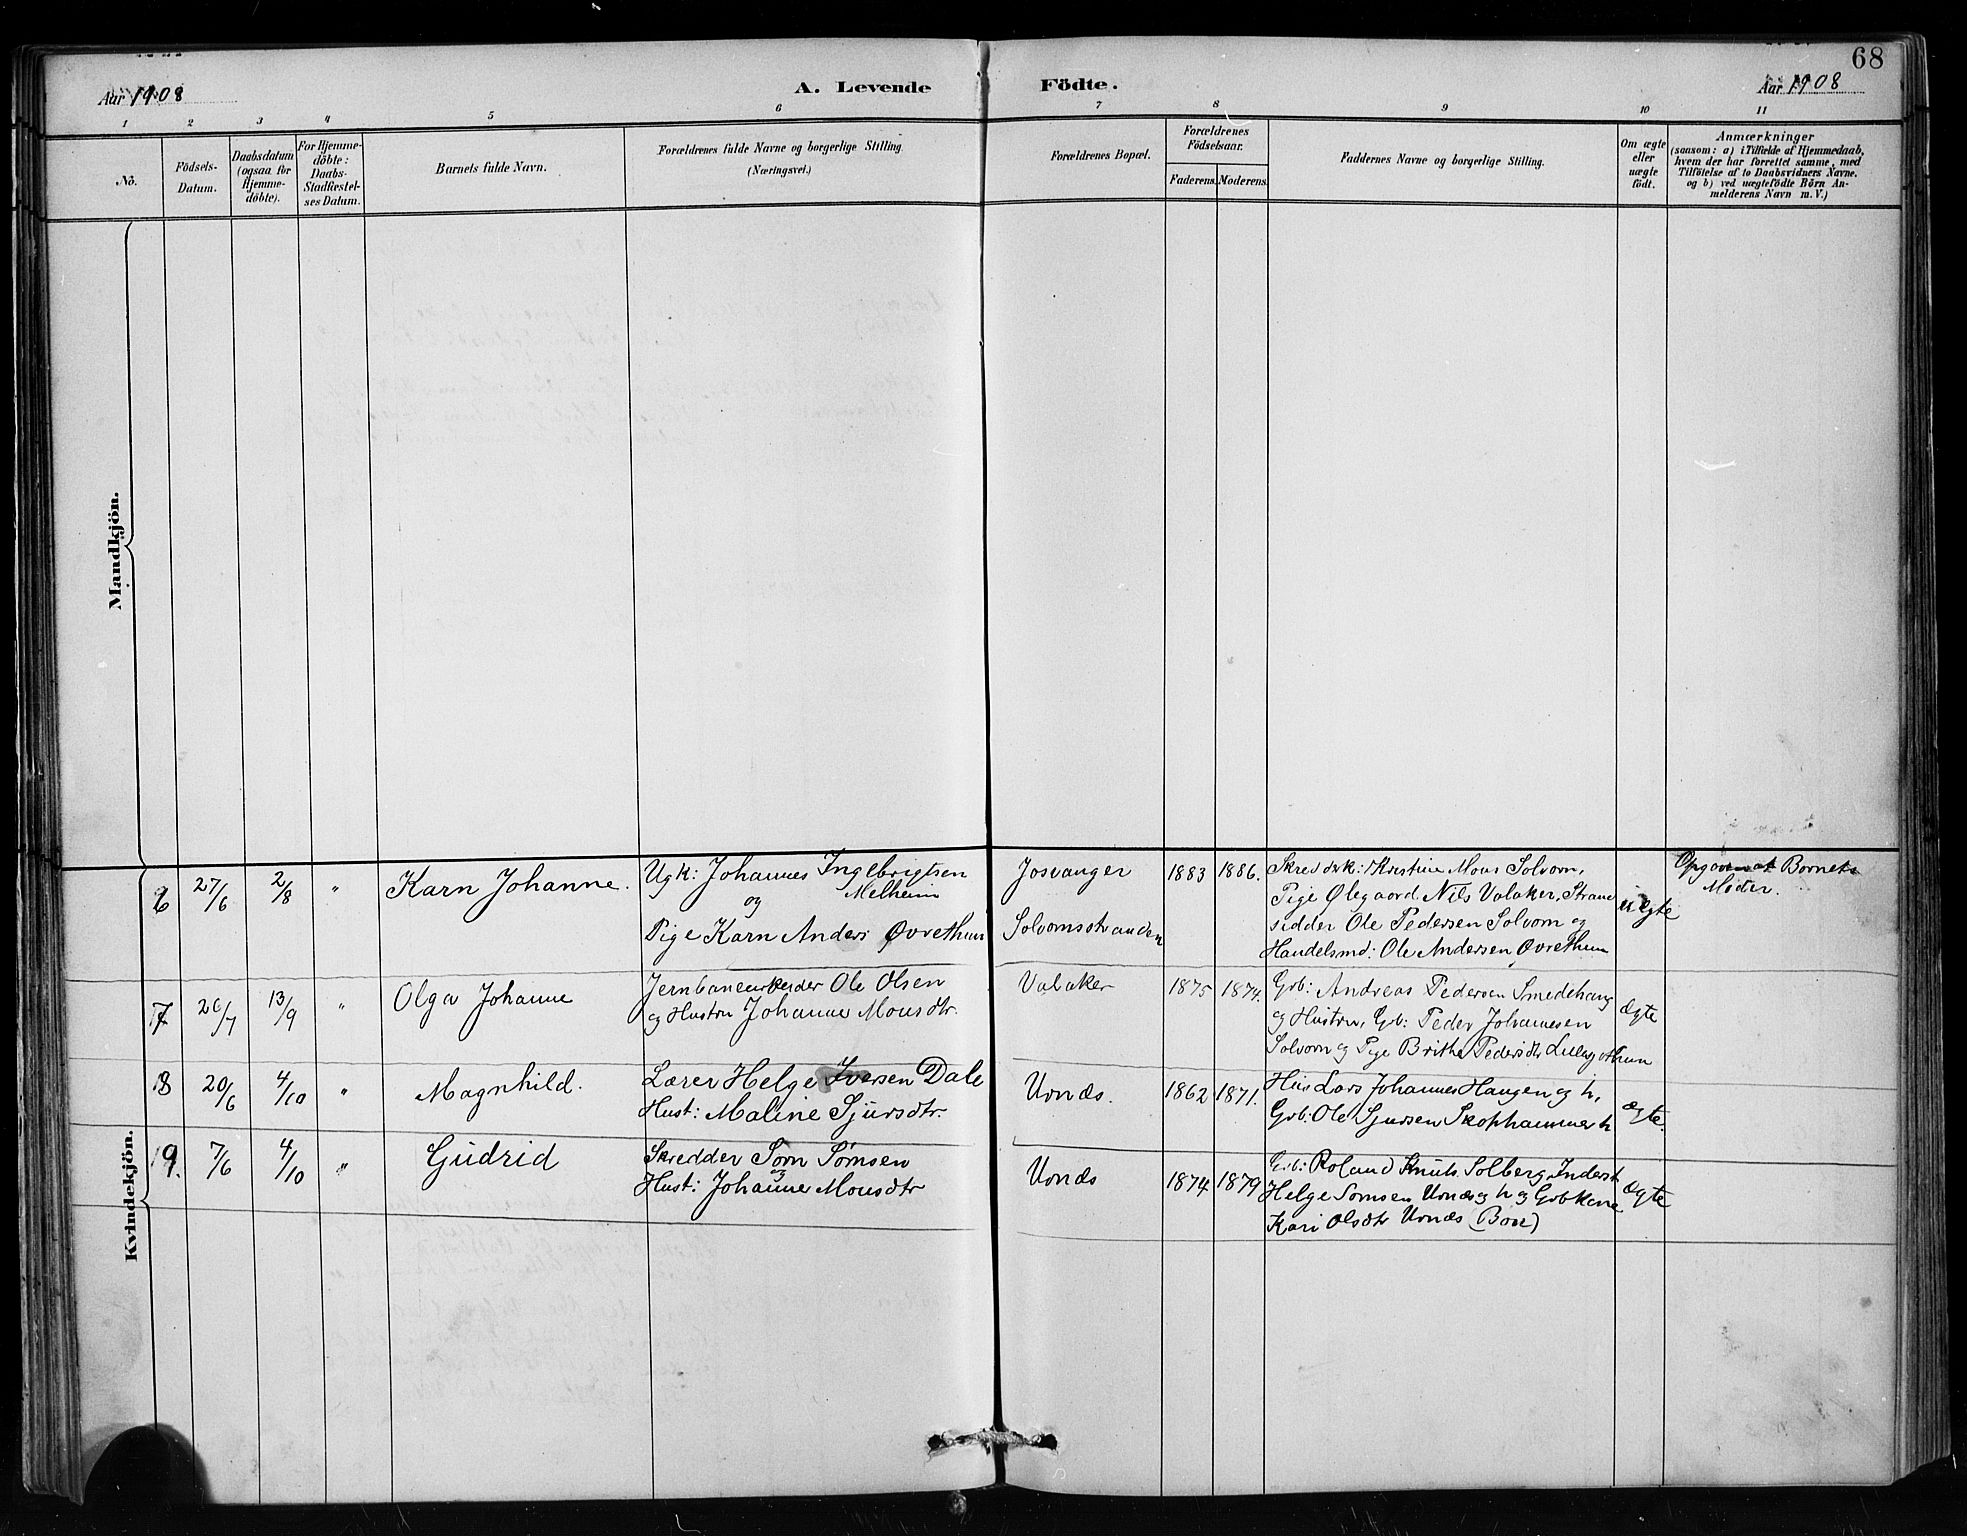 68
Aar 1908
A. Levende Födte.
Aar 1908
1 2 3 4 5 6 7 8 9 10 11
No.
Födsels-
Datum.
Daabsdatum
(ogsaa for
Hjemme-
döbte).
For Hjemme-
döbte:
Daabs-
Stadfæstel-
ses Datum.
Barnets fulde Navn.
Forældrenes fulde Navne og borgerlige Stilling.
(Næringsvei.)
Forældrenes Bopæl.
Forældrenes
Födselsaar.
Faderens. Moderens.
Faddernes Navne og borgerlige Stilling.
Om ægte
eller
uægte
födt.
Anmærkninger
(saasom: a) i Tilfælde af Hjemmedaab,
hvem der har forrettet samme, med
Tilföielse af to Daabsvidners Navne.
og b) ved uægtefödte Börn An-
melderens Navn m. V.)
Mandkjön.
Kvindekjön.
6 27/6 2/8 " Karn Johanne.
Ugk: Johannes Ingebrigtsen
Melheim
og
Pige Karn Anders Øvrethun
Josvanger
Solvornsstranden
1883 1886.
Skreddsk: Kristine Mons Solvorn,
Pige Ølegaard Nils Valaker, Strand
sidder Ole Pedersen Solvorn og
Handelsmd: Ole Andersen Øvrethun
uægte
Barnets
Moder.
7 26/7 13/9 " Olga Johanne
Jernbanearbeider Ole Olsen
og Hustru Johanne Monsdtr.
Valaker
1875 1874.
Grb: Andreas Pedersen Smedehaug
og Hustru, Grb: Peder Johannesen
Solvorn og Pige Brithe Pedersdtr
ægte
8 20/6 4/10 " Magnhild.
Lærer Helge Iversen Dale
Hust: Maline Sjursdtr.
Urnæs.
1862 1871.
Hus Lars Johannes Haugen og h,
Grb. Ole Sjursen Skophammer h
ægte.
9. 7/6 4/10 " Gudrid
Skredder Sørn Sørnsen
og
Hust: Johanne Monsdtr
Urnæs
1874 1879
Grb: Roland Knuts. Solberg, Inderst
Helge Sørnsen Urnæs og h og Grbkone
Kari Olsdtr Urnæs (Boe)
ægte